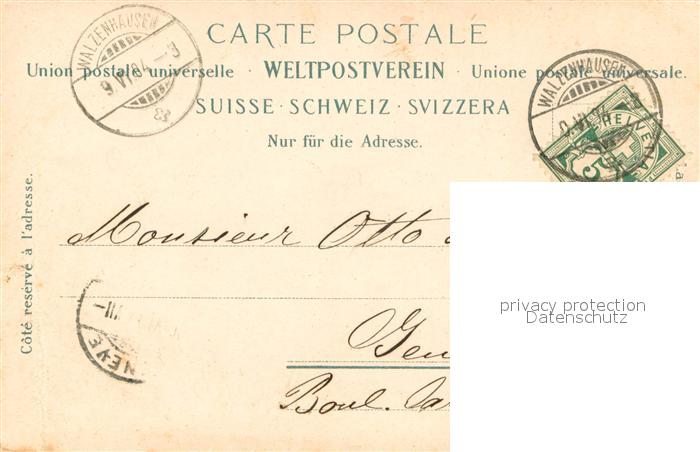 CARTE POSTALE
Union postale universelle · WELTPOSTVEREIN · Unione postale universale.
SUISSE · SCHWEIZ · SVIZZERA
Nur für die Adresse.
Côté réservé à l'adresse.
WALZENHAUSEN
9.VI.04.–9
WALZENHAUSEN
HELVETIA
5
Monsieur Otto
Gen
Boul.
NEVE
privacy protection
Datenschutz